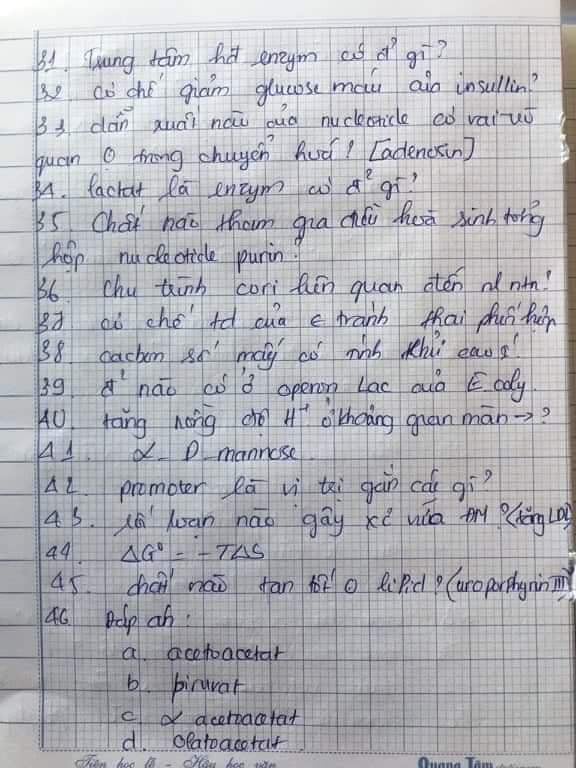 31. Trung tâm hđ enzym có đ² gì?
32. cơ chế giảm glucose máu của insullin?
33. dẫn xuất nào của nucleotide có vai trò
quan ϴ trong chuyển hoá? [adenosin]
34. lactat là enzym có đ² gì?
35. Chất nào tham gia điều hoà sinh tổng
hợp nucleotide purin?
36. Chu trình cori liên quan đến nl ntn?
37. cơ chế td của c tránh thai phối hợp
38. cacbon số mấy có tính khử cao I?
39. đ² nào có ở operon Lac của E coly.
40. tăng nồng độ H⁺ ở khoảng gian màn →?
41. α _ D_mannose.
42. promoter là vị trí gắn các gì?
43. rối loạn nào gây xơ vữa ĐM? (tăng LDL)
44. ΔG⁰ = -TΔS
45. chất nào tan tốt ở lipid? (uroporthyrin III)
46. Đáp án:
a. acetoacetat
b. piruvat
c. α acetoacetat
d. Oxatoacetat.
Tiên học lễ - Hậu học văn
Quang Tâm